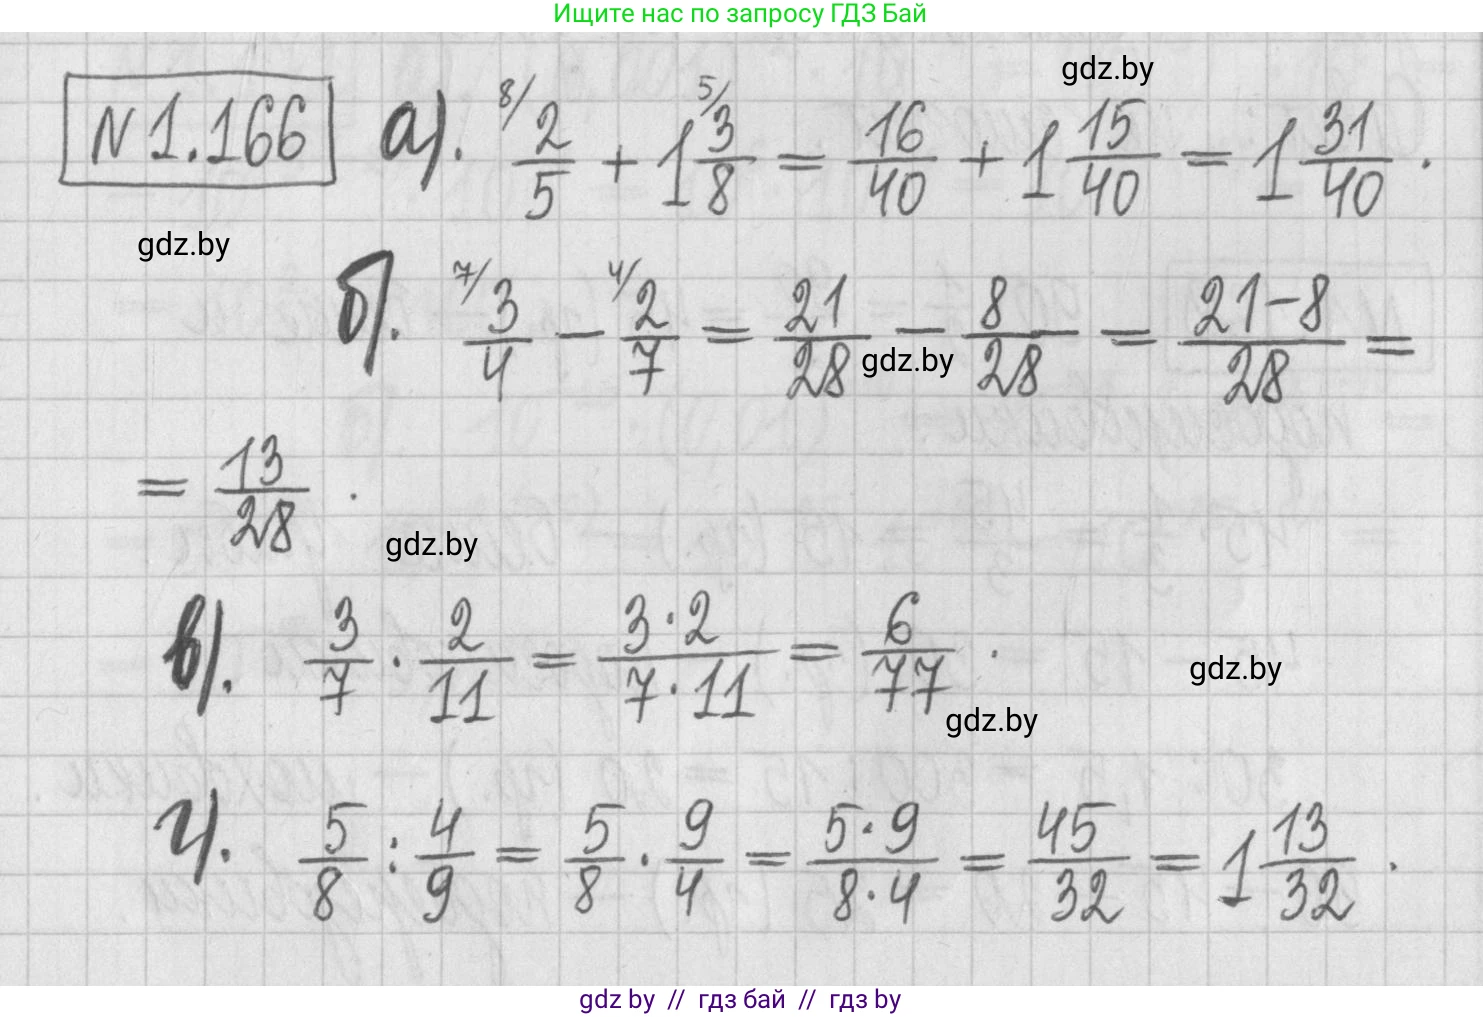 Ищите нас по запросу ГДЗ Бай
gdz.by
N 1.166 а). 8/ 2/5 + 1 5/ 3/8 = 16/40 + 1 15/40 = 1 31/40 .
gdz.by
б). 7/ 3/4 − 4/ 2/7 = 21/28 − 8/28 = (21−8)/28 =
gdz.by
= 13/28 .
gdz.by
в). 3/7 · 2/11 = (3·2)/(7·11) = 6/77 .
gdz.by
gdz.by
г). 5/8 : 4/9 = 5/8 · 9/4 = (5·9)/(8·4) = 45/32 = 1 13/32 .
gdz by // гдз бай // гдз by